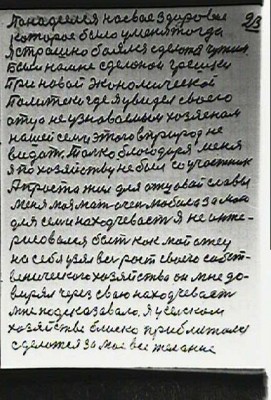 Понадеелся на свае здоровья
которое было у меня тогда
я страшно боялся сделоть чужим
Были на мне сделоной грешки
При новой экономической
Политеки где я увидел своего
отца не узноваемым хозяеном
нашей семи этого в природ не
видать. Только блогодоря меня
я по хозяйству не был соучастник
А просто жил для отцовай славы
меня моя мать очен любила за мою
для семи находчеваст я не инте-
рисовался быть как мой отец
на себя узял вес рост своего собст-
веническаго хозяйства он мне до-
вирял через свою находчеваст
мне подсказовало. Я у селском
хозяйстве блиско приближался
сделотся за мое все желание